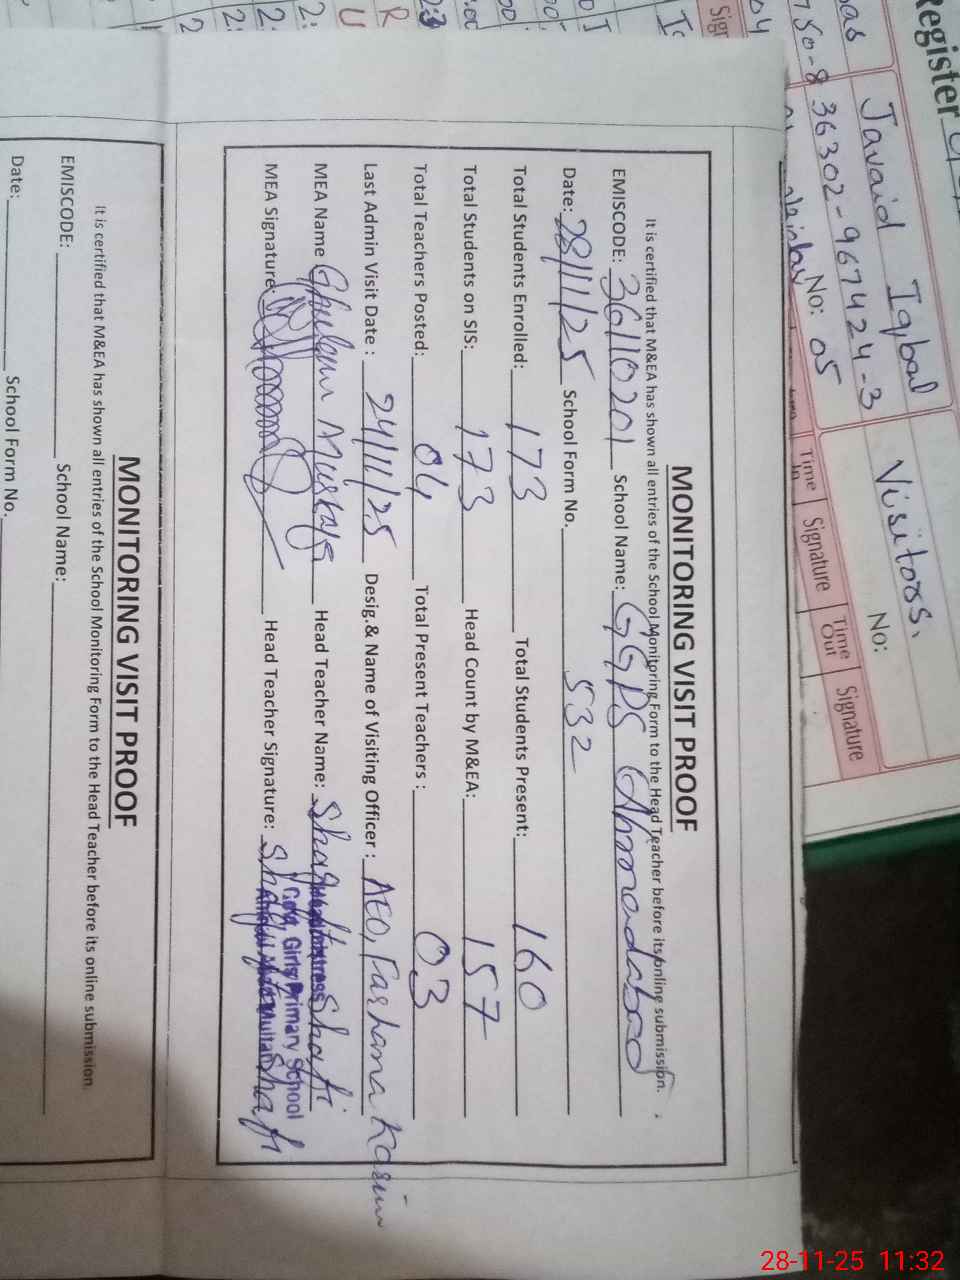 MONITORING VISIT PROOF
It is certified that M&EA has shown all entries of the School Monitoring Form to the Head Teacher before its online submission.
EMISCODE: 36110201 School Name: GGPS Ahmadabad
Date: 28/11/25 School Form No. 532
Total Students Enrolled: 173 Total Students Present: 160
Total Students on SIS: 173 Head Count by M&EA: 157
Total Teachers Posted: 04 Total Present Teachers : 03
Last Admin Visit Date : 24/11/25 Desig.& Name of Visiting Officer : AEO, Farhana Kasim
MEA Name Ghulam Mustafa Head Teacher Name: Shagufta Shafi
MEA Signature: Head Teacher Signature: Shagufta Shafi
Headmistress
Govt. Girls Primary School
Multan
MONITORING VISIT PROOF
It is certified that M&EA has shown all entries of the School Monitoring Form to the Head Teacher before its online submission.
EMISCODE: School Name:
Date: School Form No.
Register
Visitors.
Javaid Iqbal
36302-967424-3
No: 05
No:
Time In Signature Time Out Signature
28-11-25 11:32